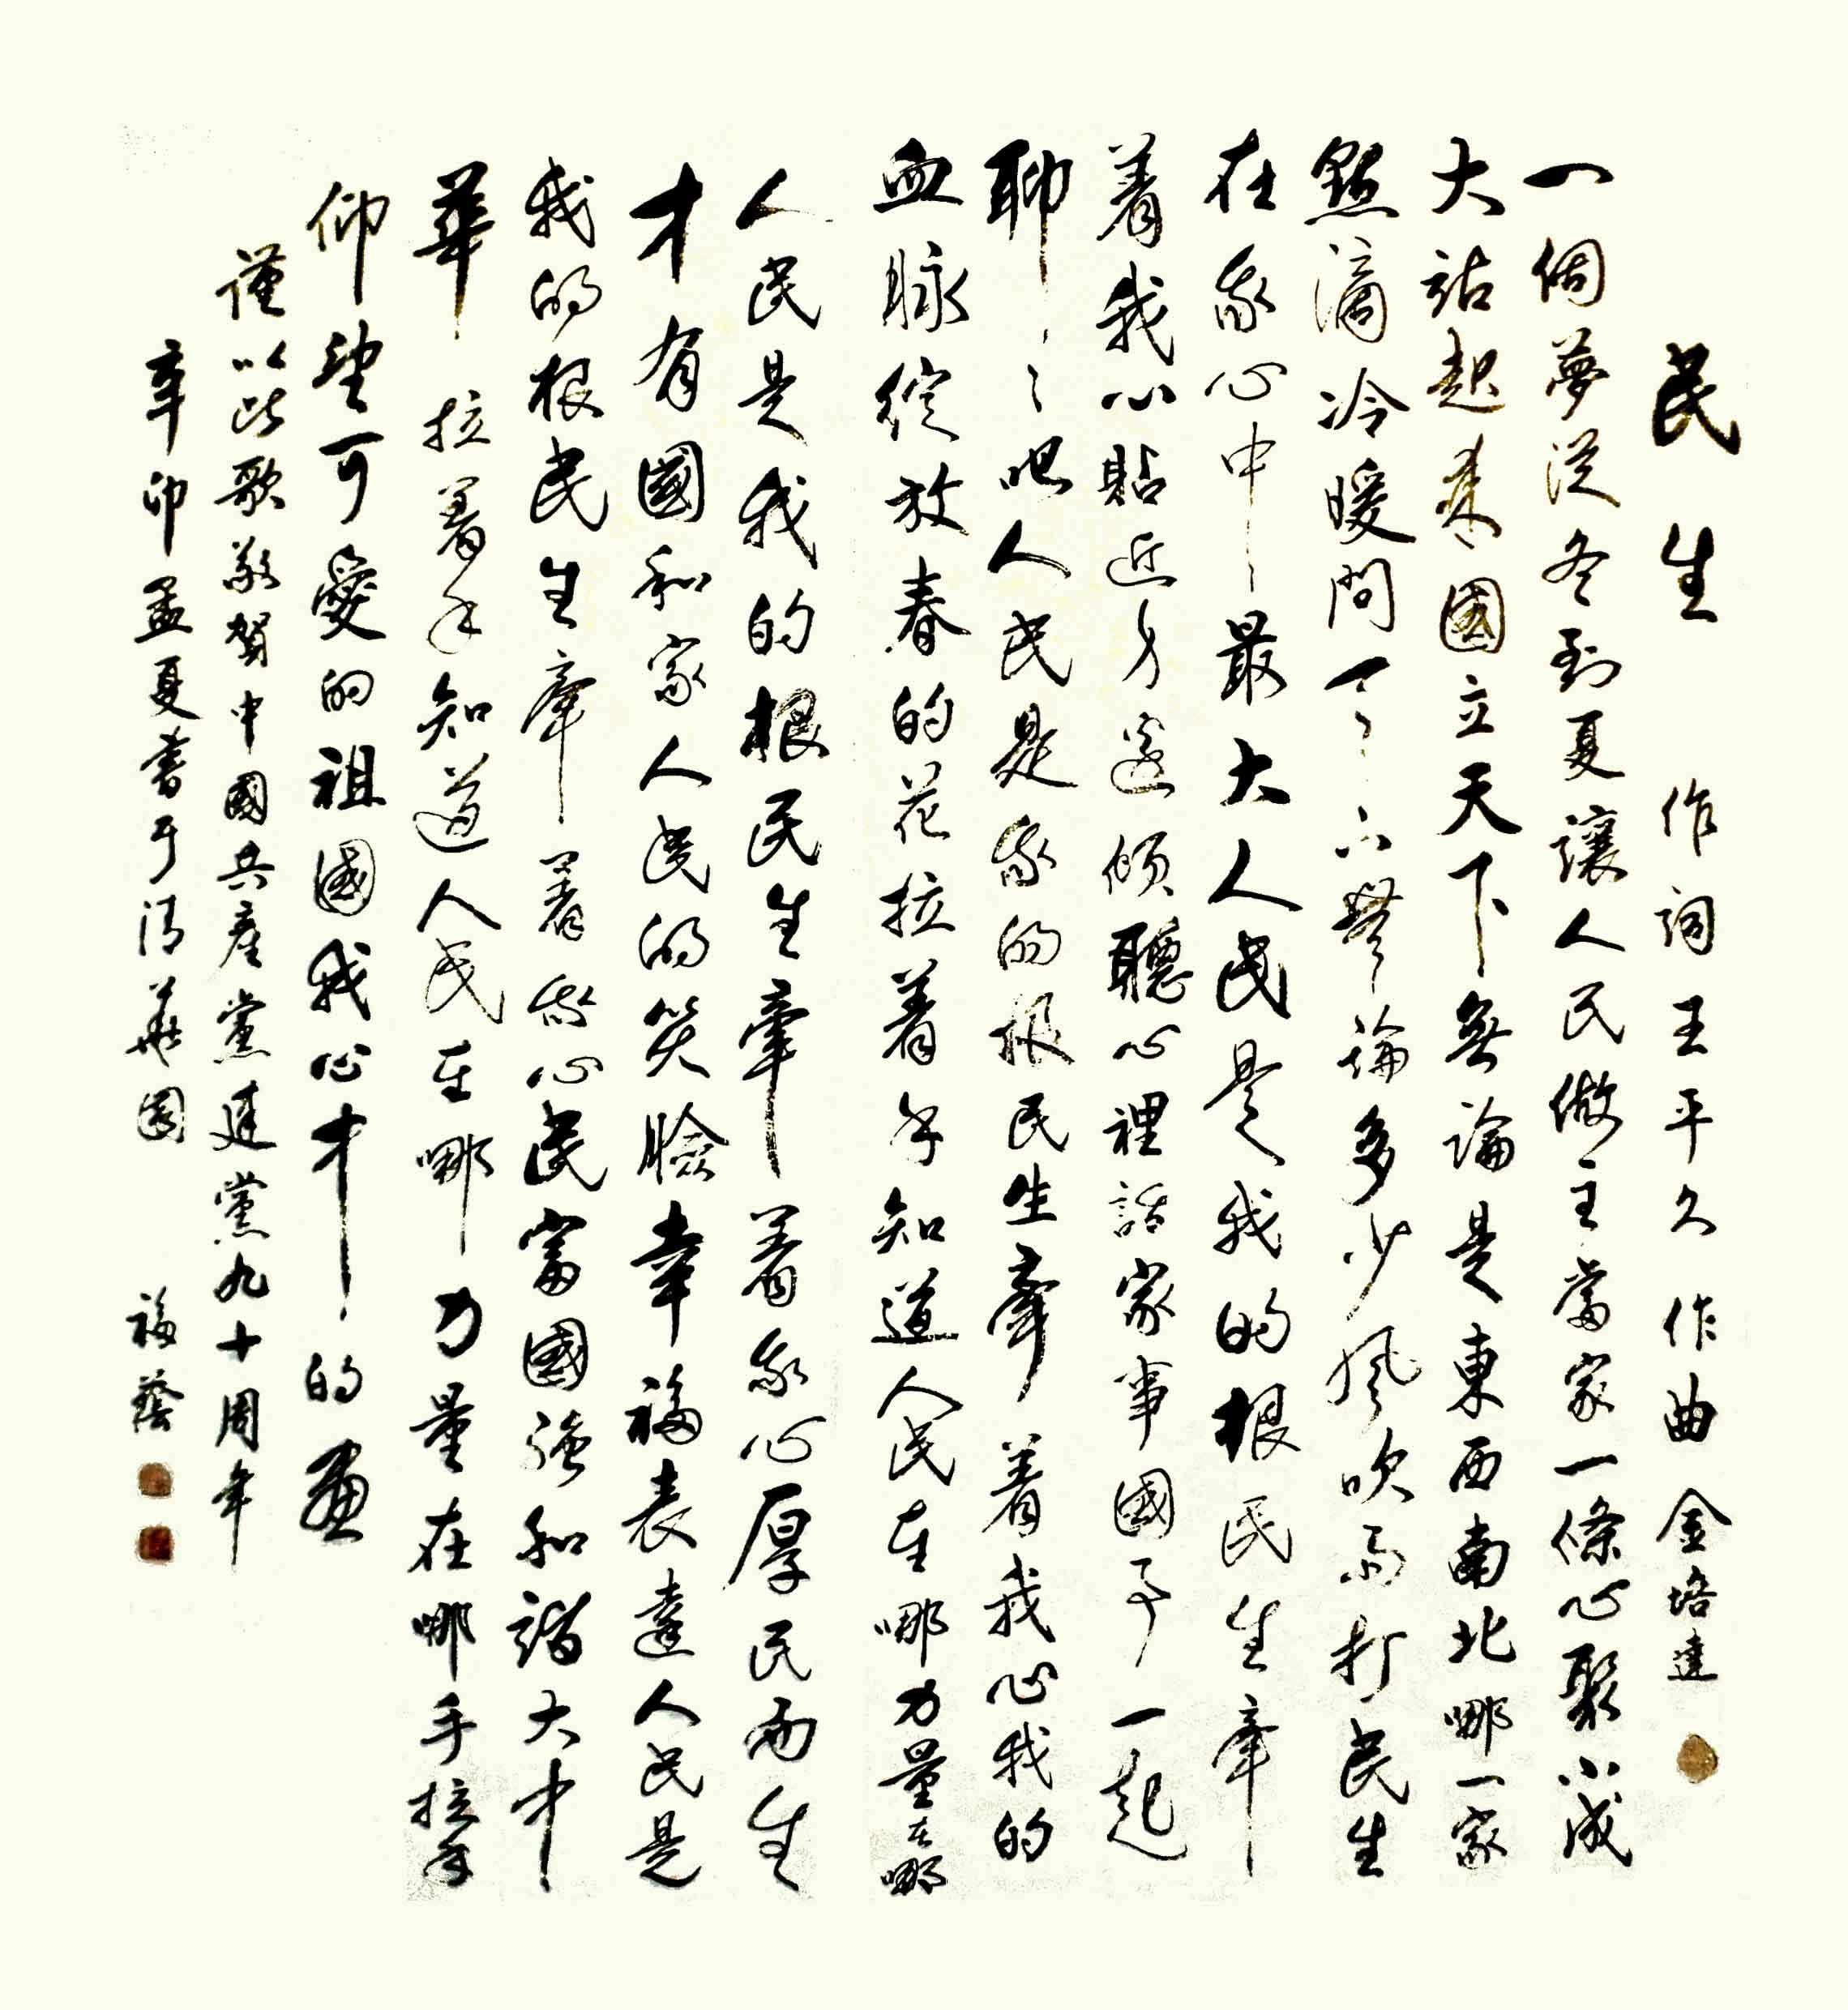 民生 作词王平久 作曲金培達
一個夢從冬到夏讓人民做主當家一條心聚小成
大站起来國立天下無論是東西南北哪一家
點滴冷暖問一下無論多少风吹雨打民生
在我心中最大人民是我的根民生牽
着我心貼近身邊傾聽心裡話家事國事一起
聊聊吧人民是我的根民生牽着我心我的
血脉綻放春的花拉着手知道人民在哪力量在哪
人民是我的根民生牽着我心厚民而生
才有國和家人民的笑臉幸福表達人民是
我的根民生牽着我心民富國強和諧大中
華 拉着手知道人民在哪力量在哪手拉手
仰望可愛的祖國我心中的画
謹以此歌敬賀中國共產黨建黨九十周年
辛卯孟夏書于清華園 福